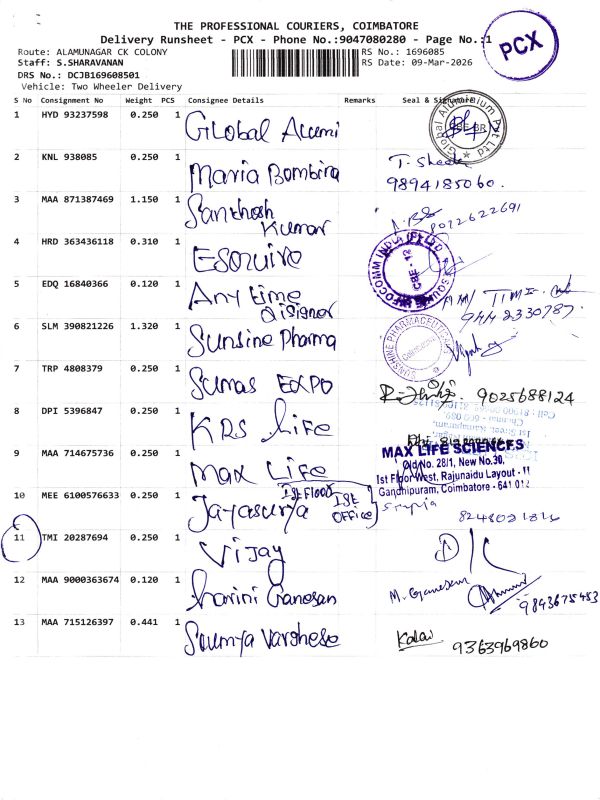 THE PROFESSIONAL COURIERS, COIMBATORE
Delivery Runsheet - PCX - Phone No.:9047080280 - Page No.:1
PCX
Route: ALAMUNAGAR CK COLONY
RS No.: 1696085
Staff: S.SHARAVANAN
RS Date: 09-Mar-2026
DRS No.: DCJB169608501
Vehicle: Two Wheeler Delivery
S No Consignment No Weight PCS Consignee Details Remarks Seal & Signature
1 HYD 93237598 0.250 1 Global Alumi
Global Aluminium Pvt Ltd
2 KNL 938085 0.250 1 Maria Bombina
9894185060.
3 MAA 871387469 1.150 1 Santhosh Kumar
8022622691
4 HRD 363436118 0.310 1 Esquire
5 EDQ 16840366 0.120 1 Any time Disigner
9442330787.
6 SLM 390821226 1.320 1 Sunsine Pharma
SUNSHINE PHARMACEUTICALS
7 TRP 4808379 0.250 1 Sumas EXPO
9025688124
8 DPI 5396847 0.250 1 KRS Life
9 MAA 714675736 1 Max Life
MAX LIFE SCIENCES
Old No. 28/1, New No.30,
1st Floor West, Rajunaidu Layout - II
Gandhipuram, Coimbatore - 641 012
10 MEE 6100576633 0.250 1 Jayasurya Ist Floor Ist Office
11 TMI 20287694 0.250 1 Vijay
12 MAA 9000363674 0.120 1 Harini Ganesan
M. Ganesan
9843675453
13 MAA 715126397 0.441 1 Soumya Varghese
Kalai 9363969860